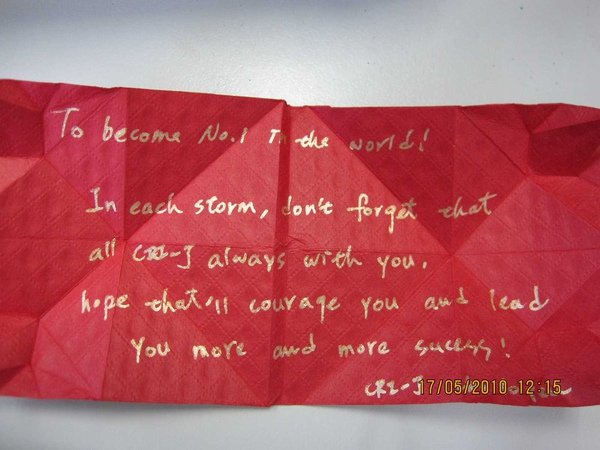 To become No.1 In the world!
In each storm, don't forget that
all CRL-J always with you.
hope that'll courage you and lead
you more and more sucess!
CRL-J
17/05/2010 12:15